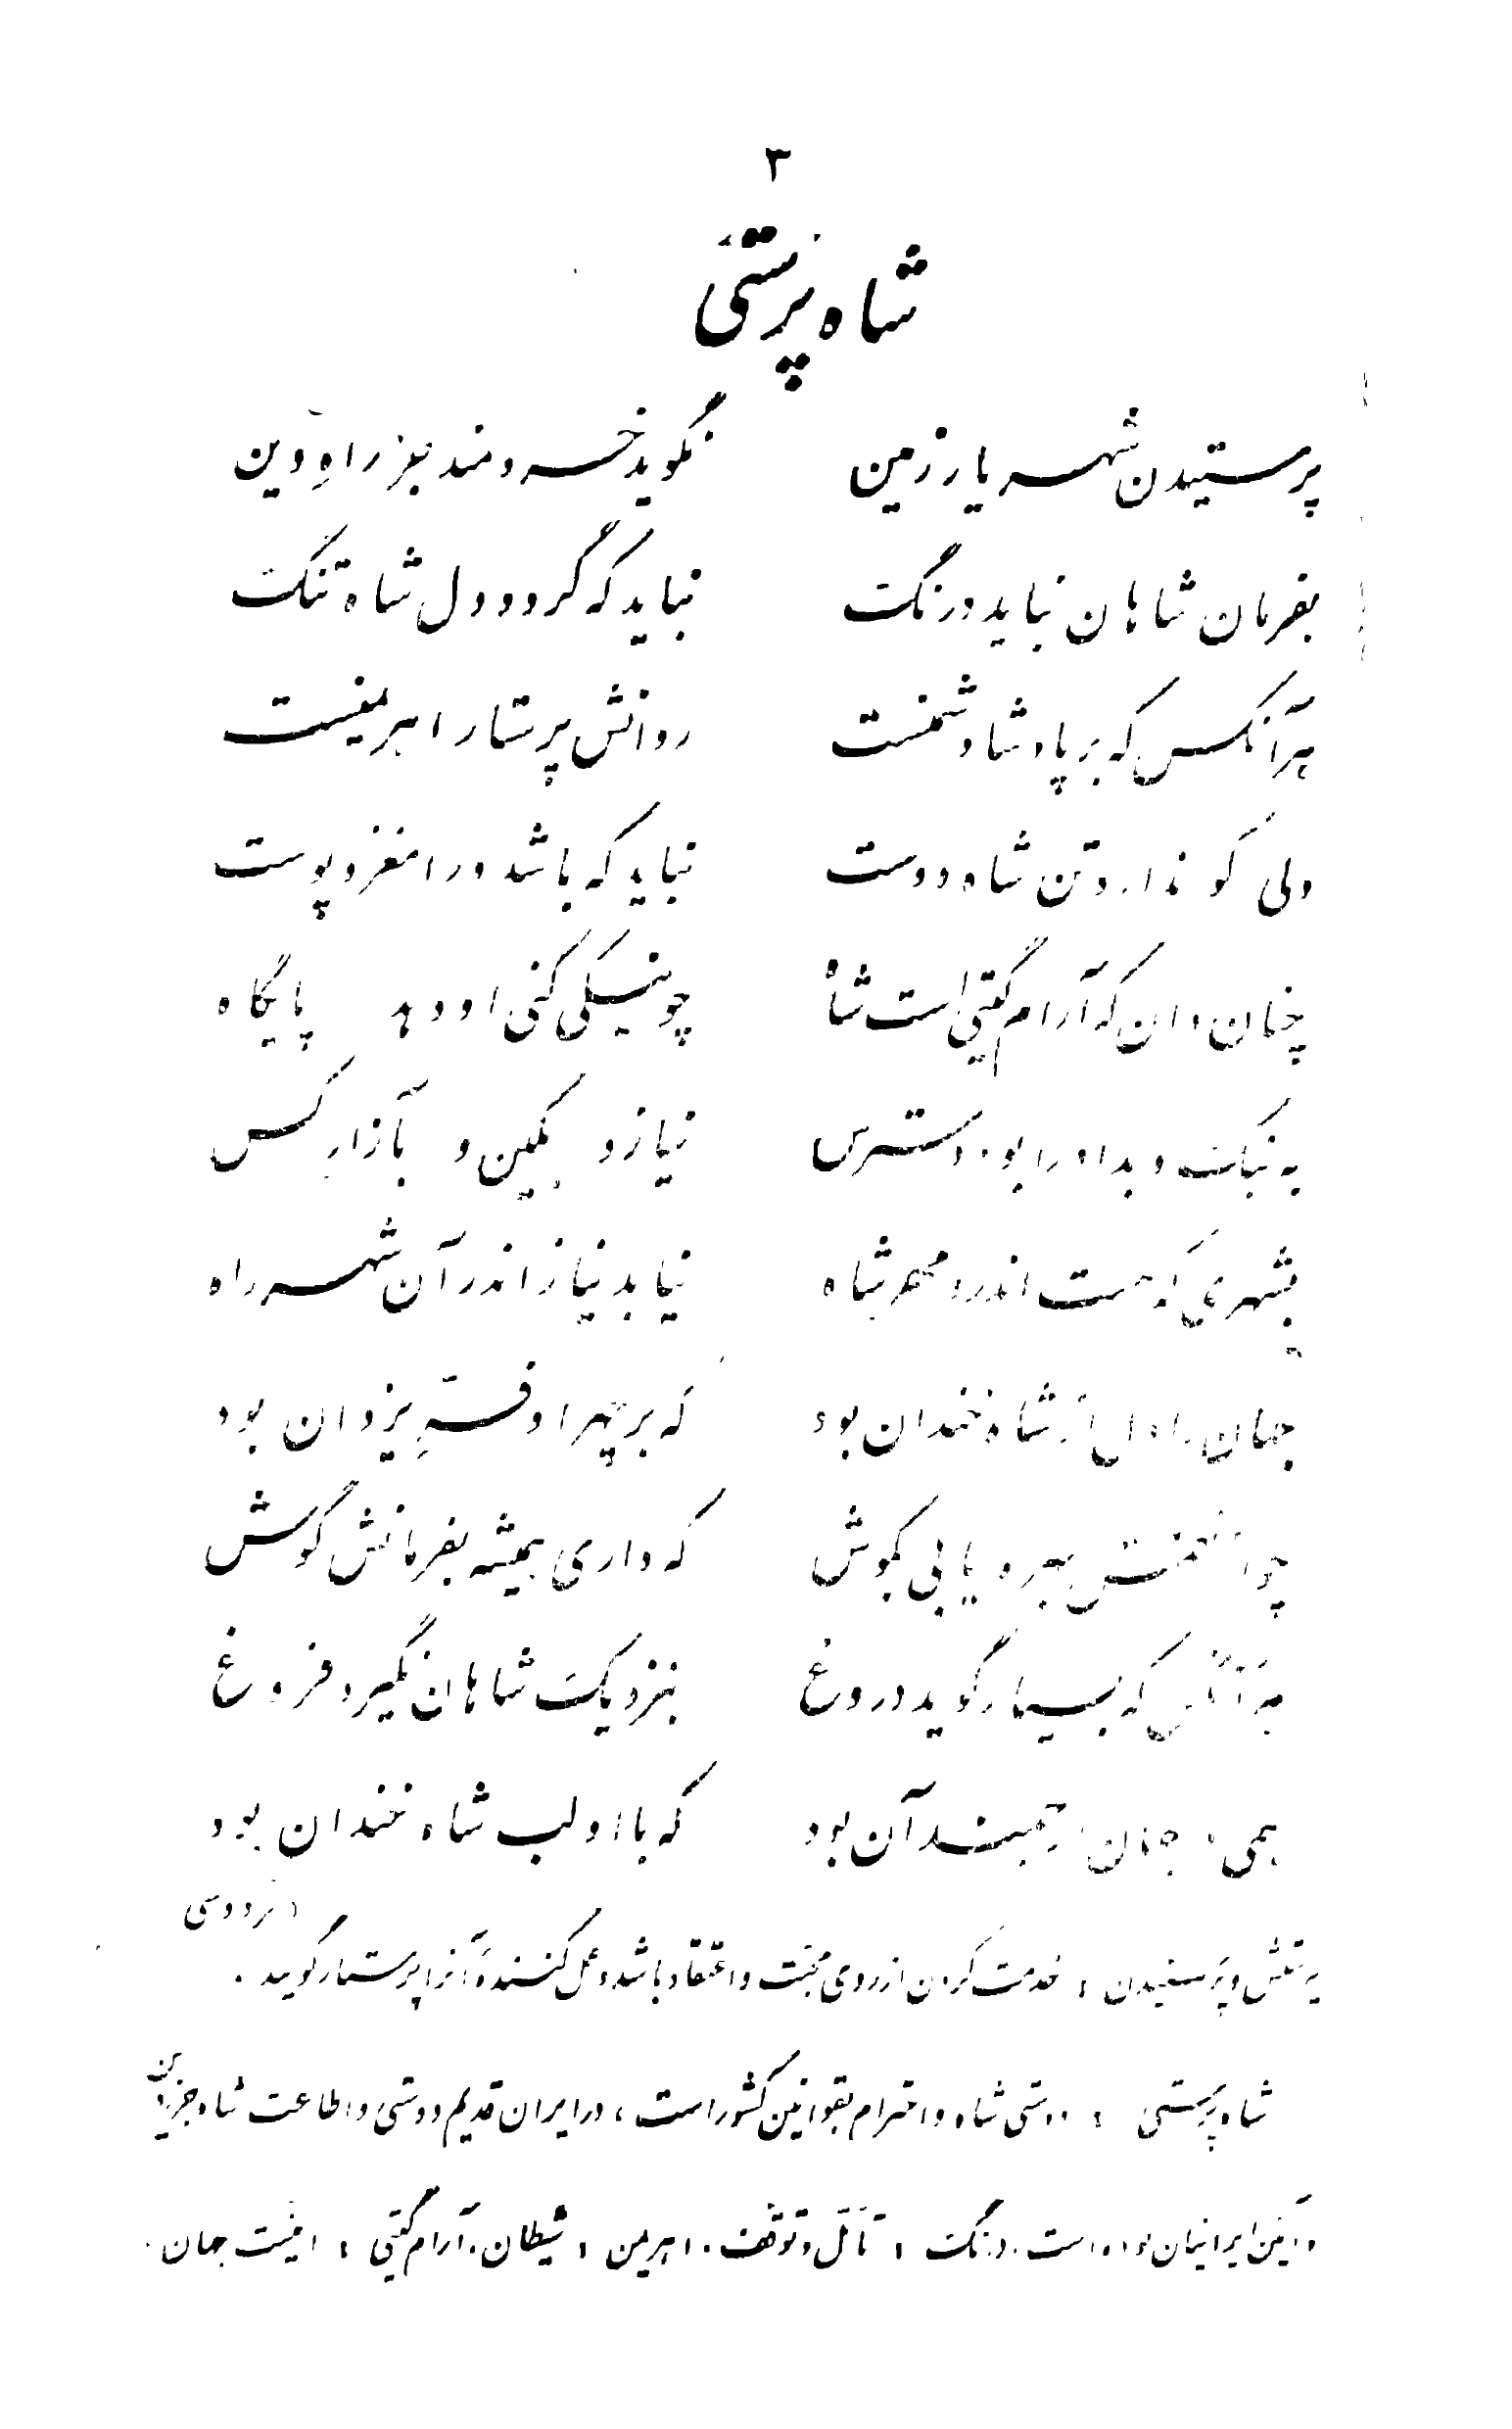 ۳
شاه پرستی
پرستیدن شهریار زمین نگوید خردمند جز راهِ دین
بفرمان شاهان نباید درنگ نباید که گردد دل شاه تنگ
هرآنکس که بر پادشا دشمنست روانش پرستار اهریمنست
دلی کو ندارد تن شاه دوست نباید که باشد ورا مغز و پوست
چنان دان که آرام گیتی است شاه چو نیکی کنی او دهد پایگاه
به نیک و بد او را بود دسترس نیازد بکین و بآزارِ کس
بشهری که هست اندرو مهر شاه نیابد نیاز اندر آن شهر راه
جهان را دل از شاه خندان بود که بر چهر او فرّ یزدان بود
چو از نعمتش بهره یابی بکوش که داری همیشه بفرمانش گوش
هرآنکس که بسیار گوید دروغ بنزدیک شاهان نگیرد فروغ
همی در جهان ارجمند آن بود که با او لب شاه خندان بود
فردوسی
پرستش و پرستیدن : خدمت کردن از روی محبّت و اعتقاد باشد و عمل کنندهٔ آنرا پرستار گویند .
شاه پرستی : دوستی شاه و احترام بقوانین کشور است ، در ایران قدیم دوستی و اطاعت شاه جزء دین
و آئین ایرانیان بوده است . درنگ : تأمّل و توقّف . اهریمن : شیطان . آرام گیتی : امنیت جهان .